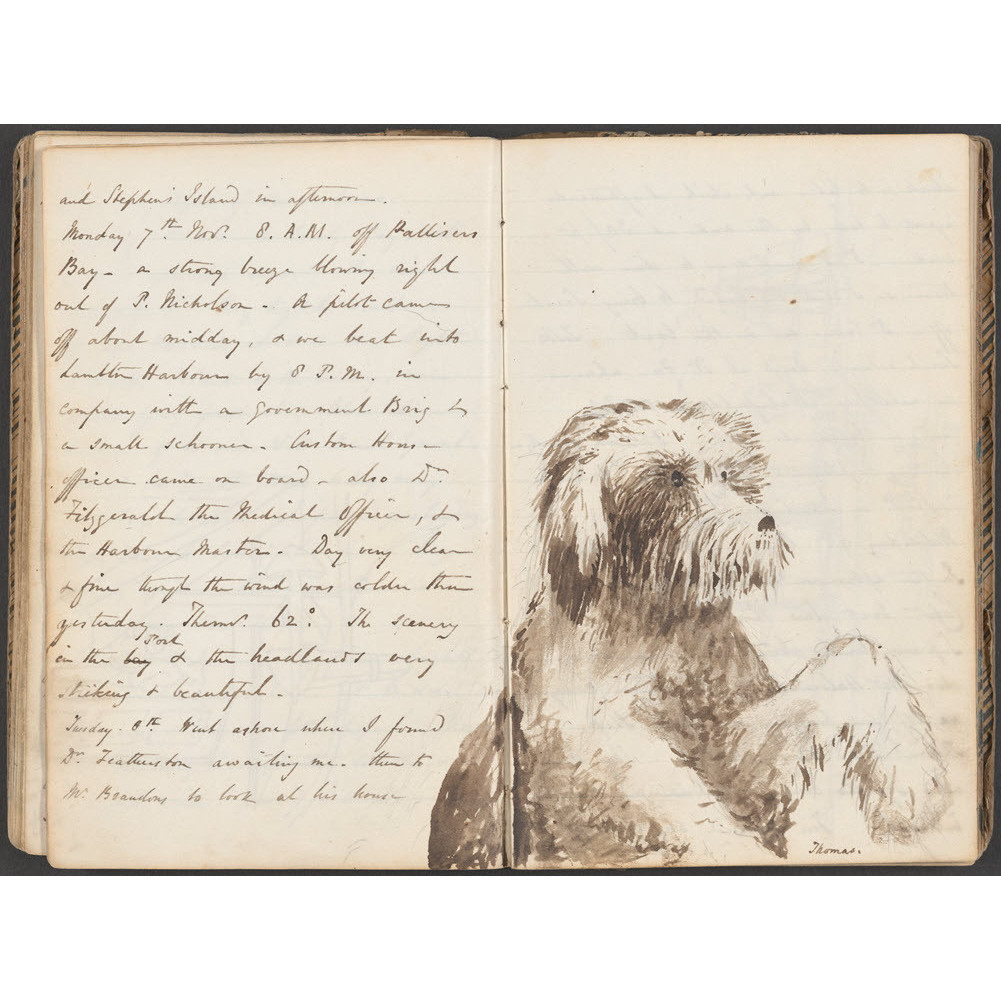 and Stephens Island in afternoon.
Monday 7th Novr. 8. A.M. off Pallisers
Bay - a strong breeze blowing right
out of P. Nicholson - A pilot came
off about midday, & we beat into
Lambton Harbour by 8 P.M. in
company with a Government Brig &
a small schooner - Custom House
officer came on board - also Dr.
Fitzgerald the Medical Officer, &
the Harbour Master - Day very clear
& fine though the wind was colder than
yesterday. Thermr. 62° The scenery
in the bay Port & the headlands very
striking & beautiful -
Tuesday. 8th Went ashore where I found
Dr. Featherston awaiting me - then to
Mr. Brandons to look at his house
Thomas.